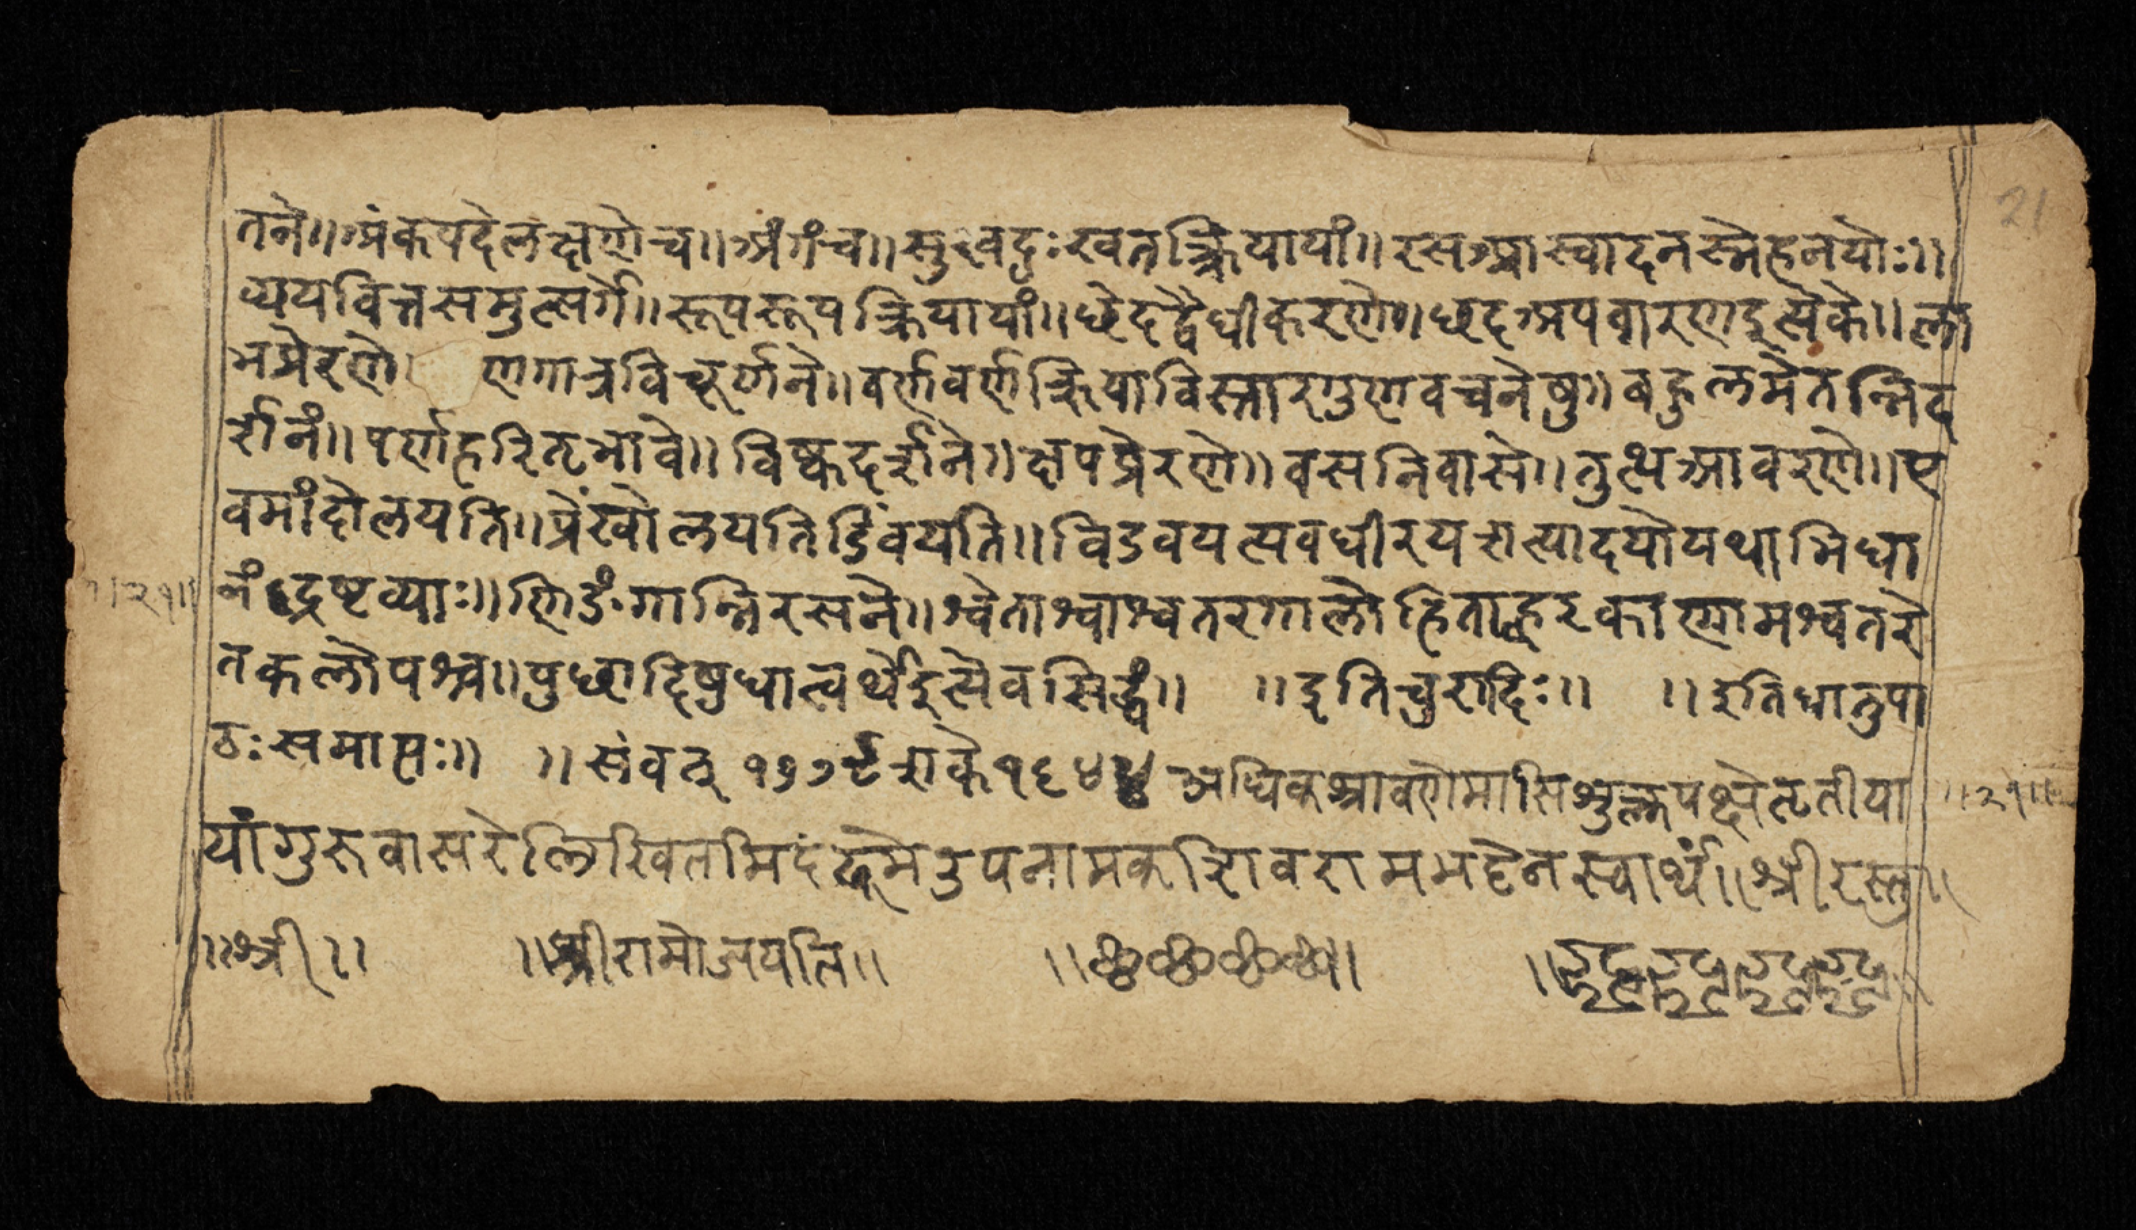 21
तने॥अंकपदेलक्षणेच॥अंगंच॥सुखदुःखतत्क्रियायां॥रसआस्वादनस्नेहनयोः॥
व्ययवित्तसमुत्सर्गे॥रूपरूपक्रियायां॥छेदद्वैधीकरणे॥छदअपवारणइत्येके॥ला
भप्रेरणे णगात्रविचूर्णने॥वर्णवर्णक्रियाविस्तारगुणवचनेषु॥बहुलमेतन्निद
र्शनं॥पर्णहरितभावे॥विष्कदर्शने॥क्षपप्रेरणे॥वसनिवासे॥तुत्थआवरणे॥ए
वमांदोलयति॥प्रेंखोलयतिडिंवयति॥विडवयत्यवधीरयशत्यादयोयथाभिधा
॥२१॥
नंद्रष्टव्याः॥णिङंगान्निरसने॥श्वेताश्वाश्वतरगालोहिताह्वरकाणामश्वतरे
तकलोपश्च॥पुछादिषुधात्वर्थेइत्येवसिद्धं॥ ॥इतिचुरादिः॥ ॥इतिधातुपा
ठः समाप्तः॥ ॥संवत् शके१६४ अधिकश्रावणेमासिशुक्लपक्षेतृतीया
॥२१॥
यांगुरुवासरेलिखितमिदं उपनामकशिवरामभट्टेनस्वार्थं॥श्रीरस्तु॥
॥श्री॥ ॥श्रीरामोजयति॥ ॥छ॥छ॥छ॥छ॥